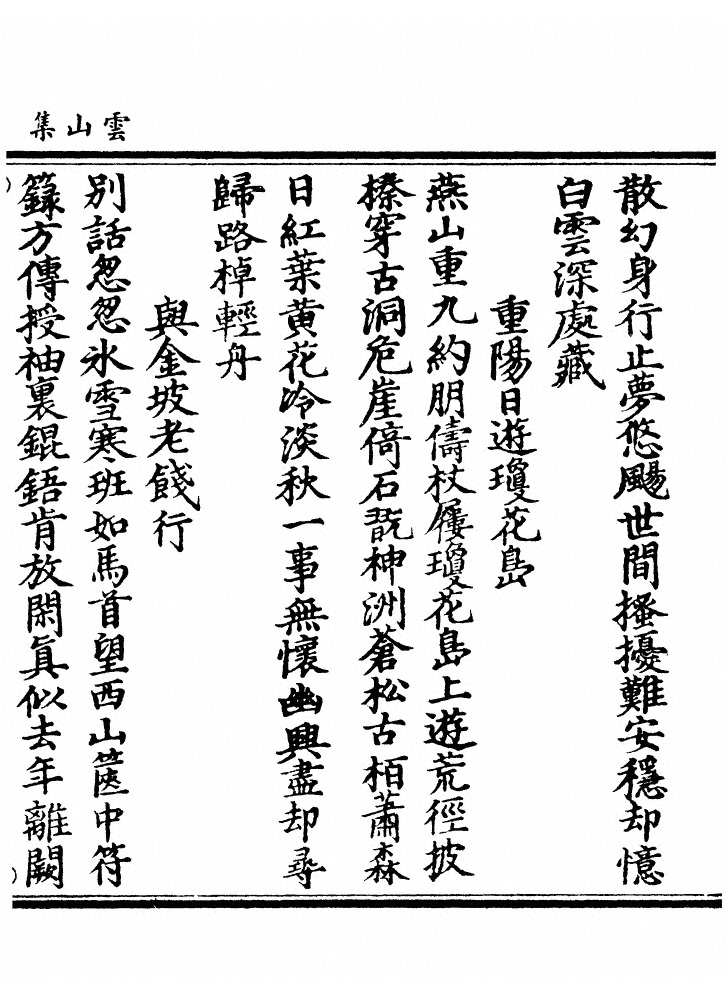 雲山集
散幻身行止夢悠颺世間搔擾難安穩却憶
白雲深處藏
重陽日遊瓊花島
燕山重九約朋儔杖屨瓊花島上遊荒徑披
榛穿古洞危崖倚石翫神洲蒼松古栢蕭森
日紅葉黄花冷淡秋一事無懷幽興盡却尋
歸路棹輕舟
與金坡老餞行
別話怱怱氷雪寒班如馬首望西山篋中符
籙方傳授袖裏錕鋙肯放閑真似去年離闕